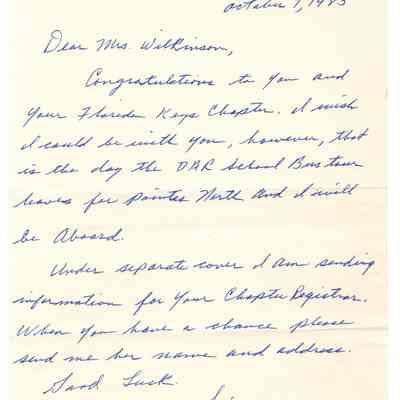 October 1, 1985
Dear Mrs. Wilkinson,
Congratulations to you and
your Florida Keys Chapter. I wish
I could be with you, however, that
is the day the DAR School Bus tour
leaves for points North and I will
be Aboard.
Under separate cover I am sending
information for your Chapter Registrar.
When you have a chance please
send me her name and address.
Good Luck.